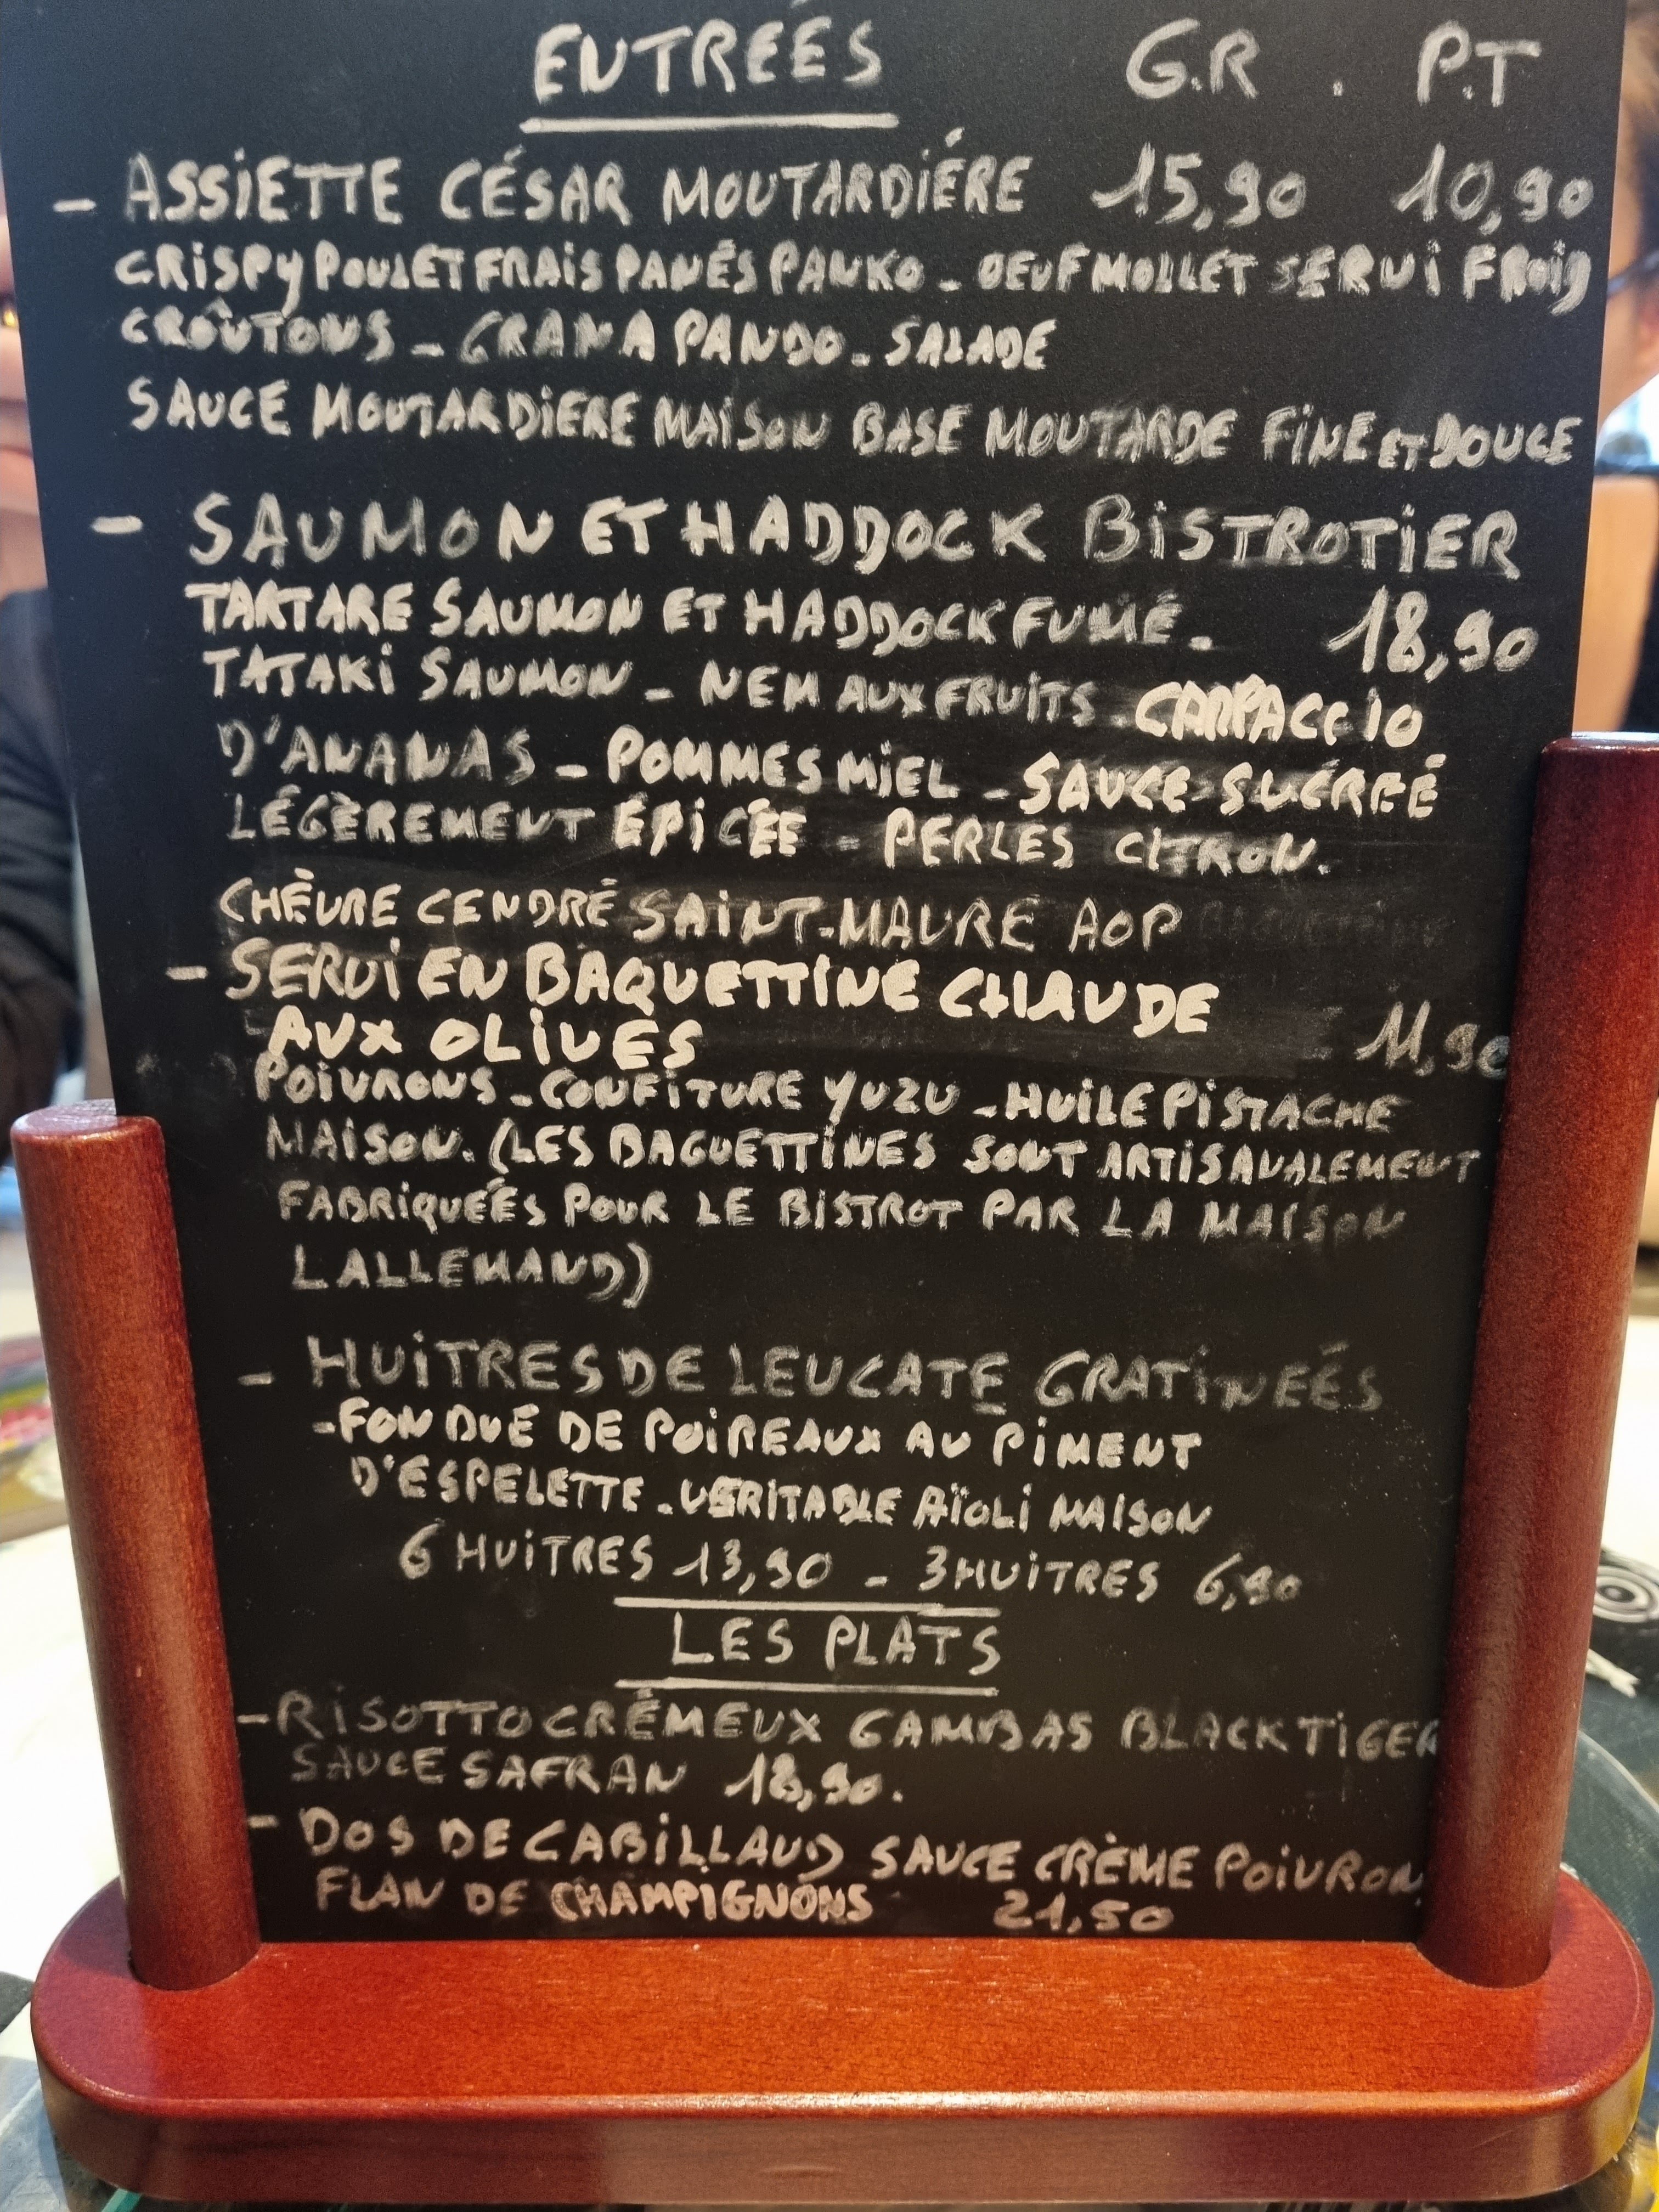 ENTREÉS G.R . P.T
- ASSIETTE CÉSAR MOUTARDIÉRE 15,90 10,90
CRISPY POULET FRAIS PANÉS PANKO - OEUF MOLLET SERVI FROID
CROÛTONS - GRANA PANDO - SALADE
SAUCE MOUTARDIERE MAISON BASE MOUTARDE FINE ET DOUCE
- SAUMON ET HADDOCK BISTROTIER
TARTARE SAUMON ET HADDOCK FUMÉ. 18,90
TATAKI SAUMON - NEM AUX FRUITS - CARPACCIO
D'ANANAS - POMMES MIEL - SAUCE SUCREÉ
LÉGÈREMENT ÉPICÉE - PERLES CITRON.
CHÈVRE CENDRÉ SAINT-MAURE AOP
- SERVI EN BAQUETTINE CHAUDE
AUX OLIVES 11,90
POIVRONS - CONFITURE YUZU - HUILE PISTACHE
MAISON. (LES BAGUETTINES SONT ARTISANALEMENT
FABRIQUEÉS POUR LE BISTROT PAR LA MAISON
LALLEMAND)
- HUITRES DE LEUCATE GRATINEÉS
- FONDUE DE POIREAUX AU PIMENT
D'ESPELETTE - VERITABLE AÏOLI MAISON
6 HUITRES 13,90 - 3 HUITRES 6,90
LES PLATS
- RISOTTO CRÉMEUX GAMBAS BLACK TIGER
SAUCE SAFRAN 18,90.
- DOS DE CABILLAUD SAUCE CRÈME POIVRON
FLAN DE CHAMPIGNONS 21,50